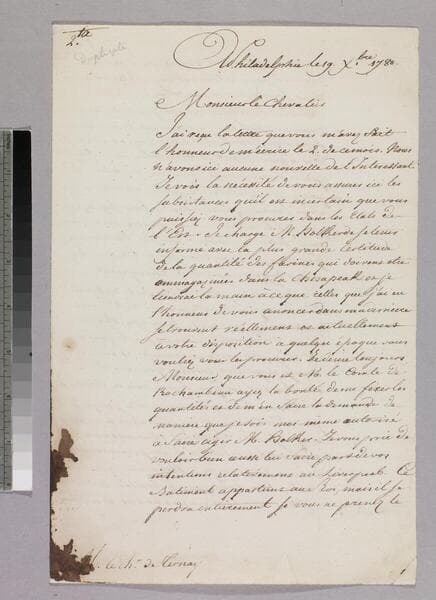 2.ta
Duplicata
Philadelphie le 19 Xbre 1780
Monsieur le Chevalier
J'ai reçu la lettre que vous m'avez fait
l'honneur de m'ecrire le 2. de ce mois. Nous
n'avons ici aucune nouvelle de l'Interessant
Je vois la necessité de vous assurer ici les
subsistances qu'il est incertain que vous
puissiez vous procurer dans les Etats de
l'Est. Je charge M. Holker de se tenir
informé avec la plus grande
de la quantité des farines que doivent etre
ammagasinées dans la Chesapeak et je
tiendrai la main à ce que celles que j'ai eu
l'honneur de vous anoncer dans ma
se trouvent réellement et actuellement
à votre disposition à quelque epoque que vous
vouliez vous les procurer. Je desire toujours
Monsieur que vous et M. le Comte de
Rochambeau ayez la bonté de me fixer les
quantités et de m'en faire la demande de
maniere que je sois moi meme autorisé
à faire agir M. Holker. Je vous prie de
vouloir bien aussi lui faire part de vos
intentions relativement au Ce
Batiment appartient au Roi, mais il se
perdra entierement si vous ne prenez le
M. le ch. de Ternay
1